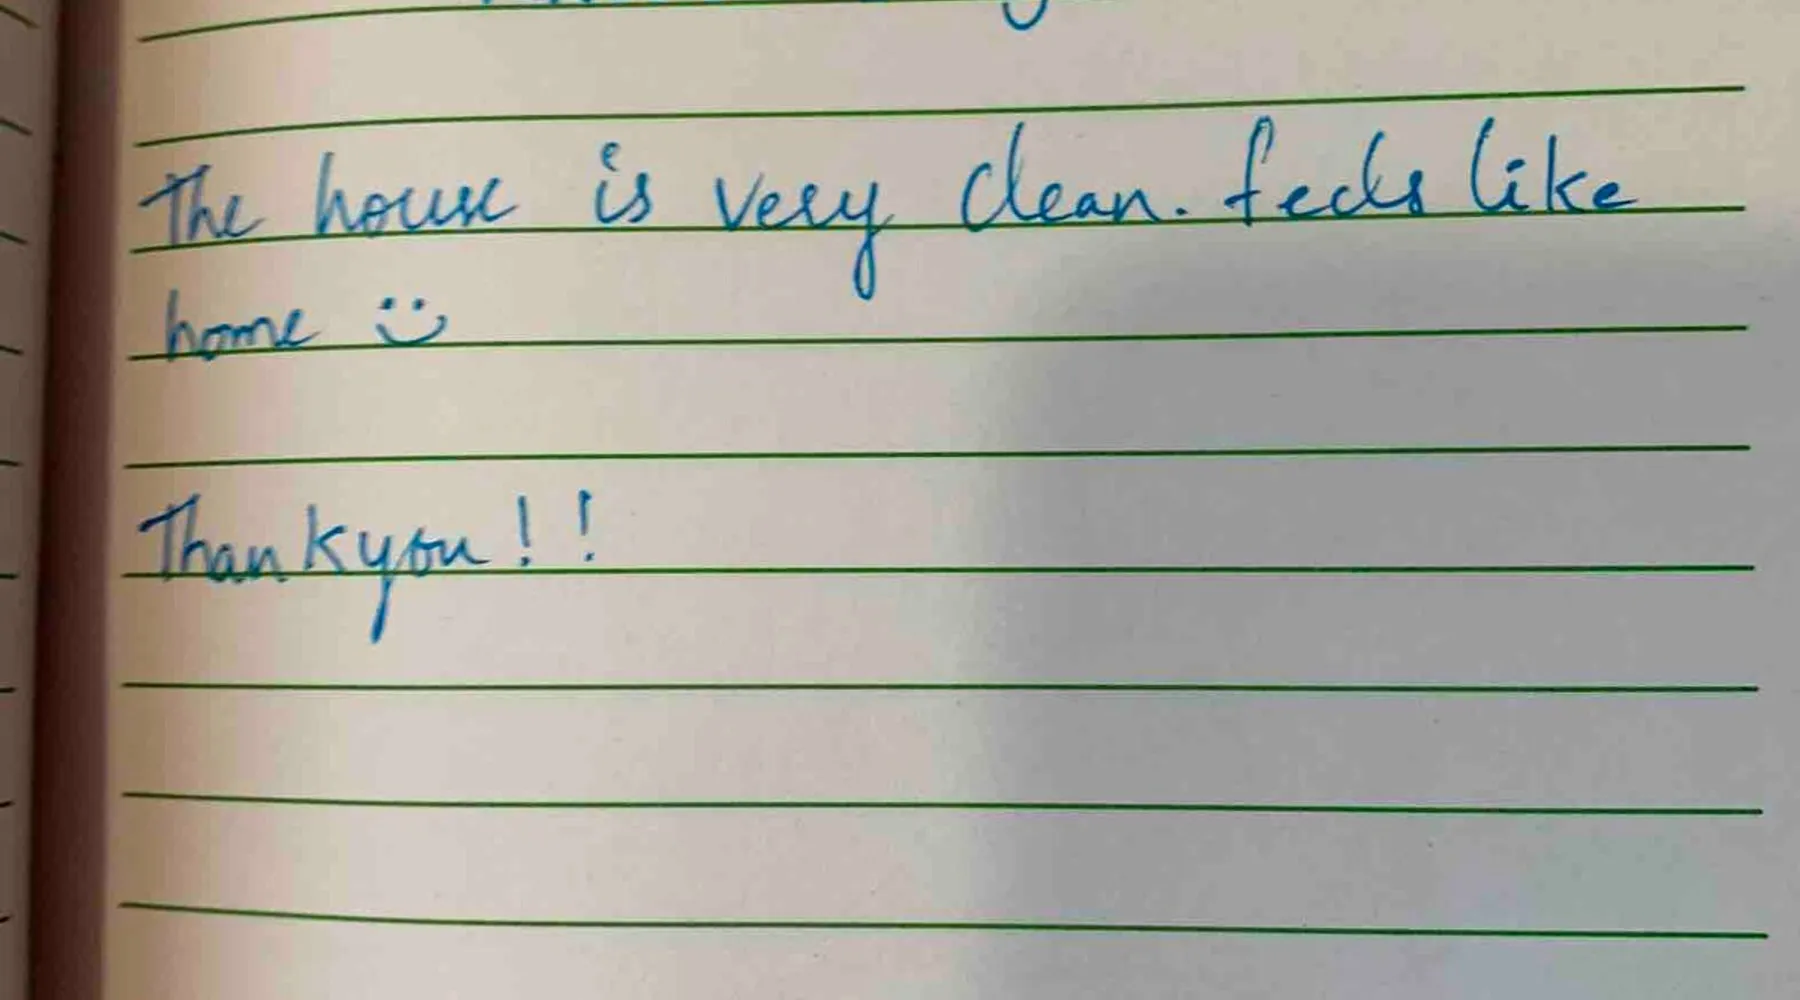 The house is very clean. feels like
home :)
Thankyou!!